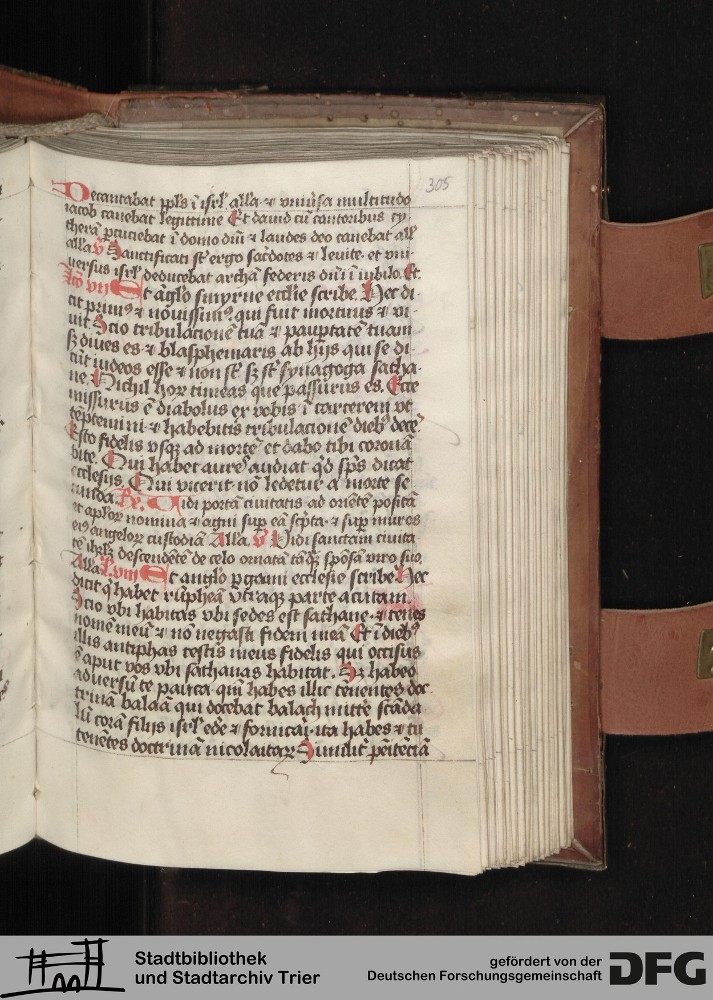 305
Decantabat ppls̄ ī isrl̄ alla ⁊ vniūsa multitudo
iacob canebat legittime Et dauid cū cantoribus cy
therā ꝑcuciebat ī domo dn̄i ⁊ laudes deo canebat all
alla v̄ Sanctificati st̄ ergo sac̄dotes ⁊ leuite et vni
uersus isrl̄ deducebat archā federis dn̄i ī iubilo. Et
vij Et āglo smyrne ecclīe scribe. Hec di
cit primꝰ ⁊ nouissimꝰ qui fuit mortuus ⁊ vi
uit Scio tribulacionē tuā ⁊ paupertatē tuam
sꝫ diues es ⁊ blasphemaris ab hijs qui se di
cūt iudeos esse ⁊ non st̄ sꝫ st̄ synagoga satha
ne. Nichil hoꝝ timeas que passurus es. Ecce
missurus ē diabolus ex vobis ī carcerem vt
tēptemini ⁊ habebitis tribulacionē diebꝰ decē
Esto fidelis vsqꝫ ad mortē et dabo tibi coronā
vite. Qui habet aurē audiat qd̄ sps̄ dicat
ecclesijs. Qui vicerit nō ledetur a morte se
cunda. Vidi portā ciuitatis ad oriētē positā
et aplōꝝ nomina ⁊ agni suꝑ eā scp̄ta ⁊ suꝑ muros
eiꝰ angeloꝝ custodiā Alla. v̄ Vidi sanctam ciuita
tē ihrlm̄ descendētē de celo ornatā tāqꝫ spōsā viro suo
Alla L. viij Et anglo pgami ecclesie scribe Hec
dicit q̄ habet rūpheā vtraqꝫ parte acutam
Scio vbi habitas vbi sedes est sathane ⁊ tenes
nomē meū ⁊ nō negasti fidem meā Et ī diebꝰ
illis antiphas testis meus fidelis qui occisus
ē aput vos vbi sathanas habitat. Sꝫ habeo
aduersū te pauca. qm̄ habes illic tenentes doc
trinā balaā qui docebat balach mitte scāda
lū corā filijs isrl̄ edē ⁊ fornicāi. ita habes ⁊ tu
tenētes doctrinā nicolaitaꝝ Similit̄ pēitēciā
Stadtbibliothek
und Stadtarchiv Trier
gefördert von der
Deutschen Forschungsgemeinschaft
DFG